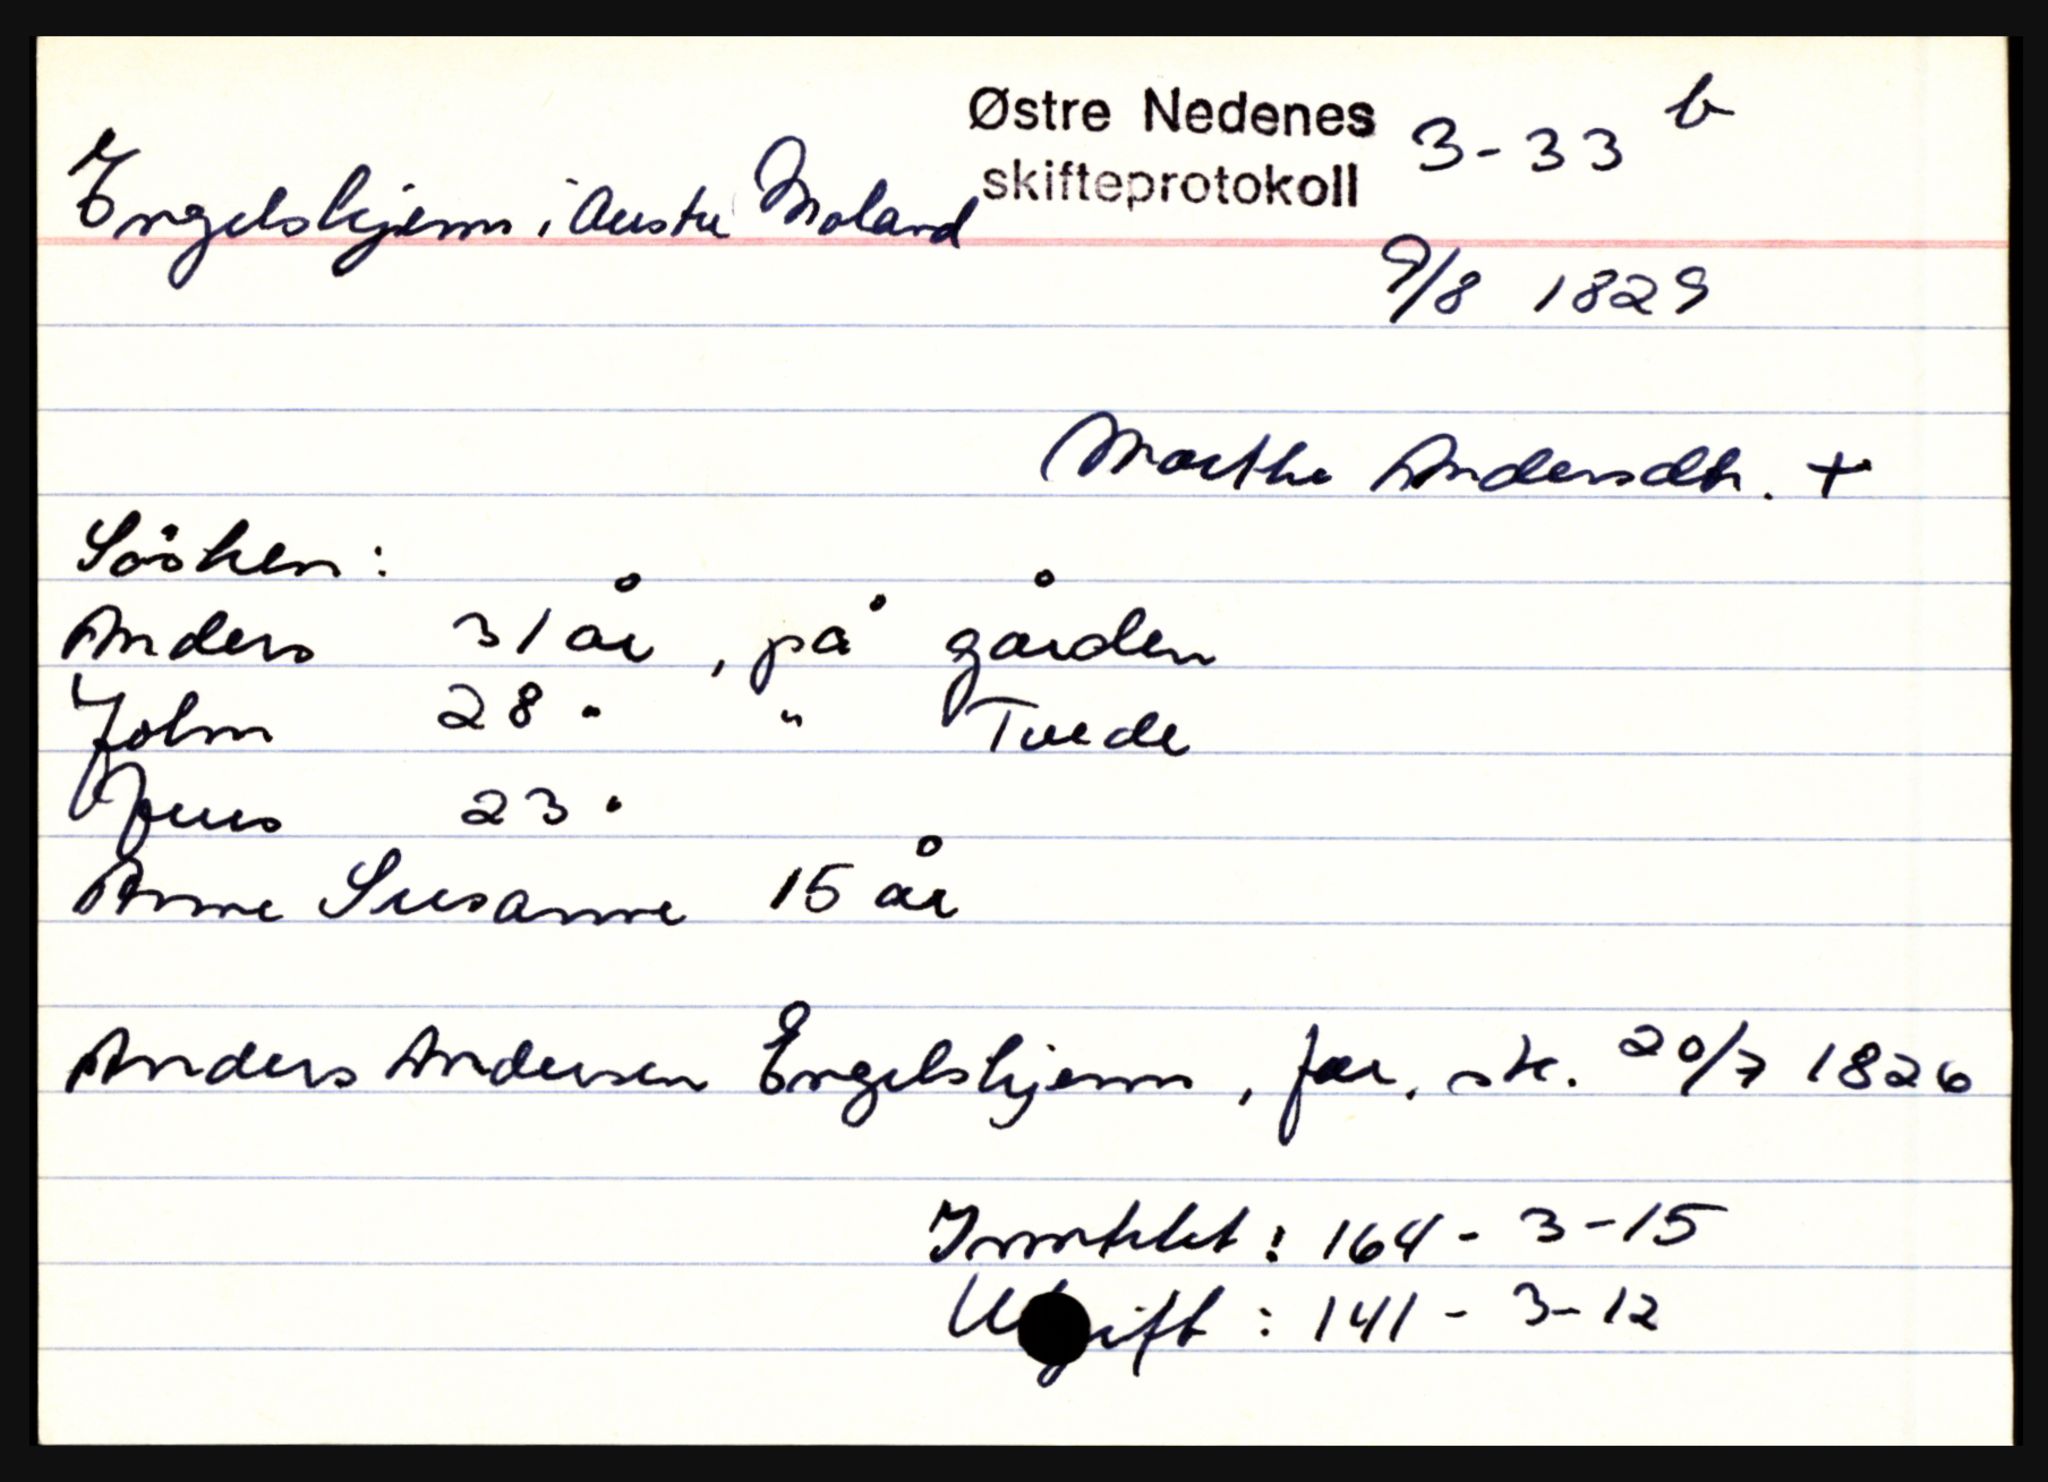 Østre Nedenes 3-33 b
skifteprotokoll
Engelskjenn i Austre Moland
9/8 1829
Marthe Andersdtr. +
Søsken:
Anders 31 år, på gården
John 28 " " Tvede
Jens 23 "
Anne Susanne 15 år
Anders Andersen Engelskjenn, far, sk. 20/7 1826
Inntekt: 164 - 3 - 15
Utgift : 141 - 3 - 12